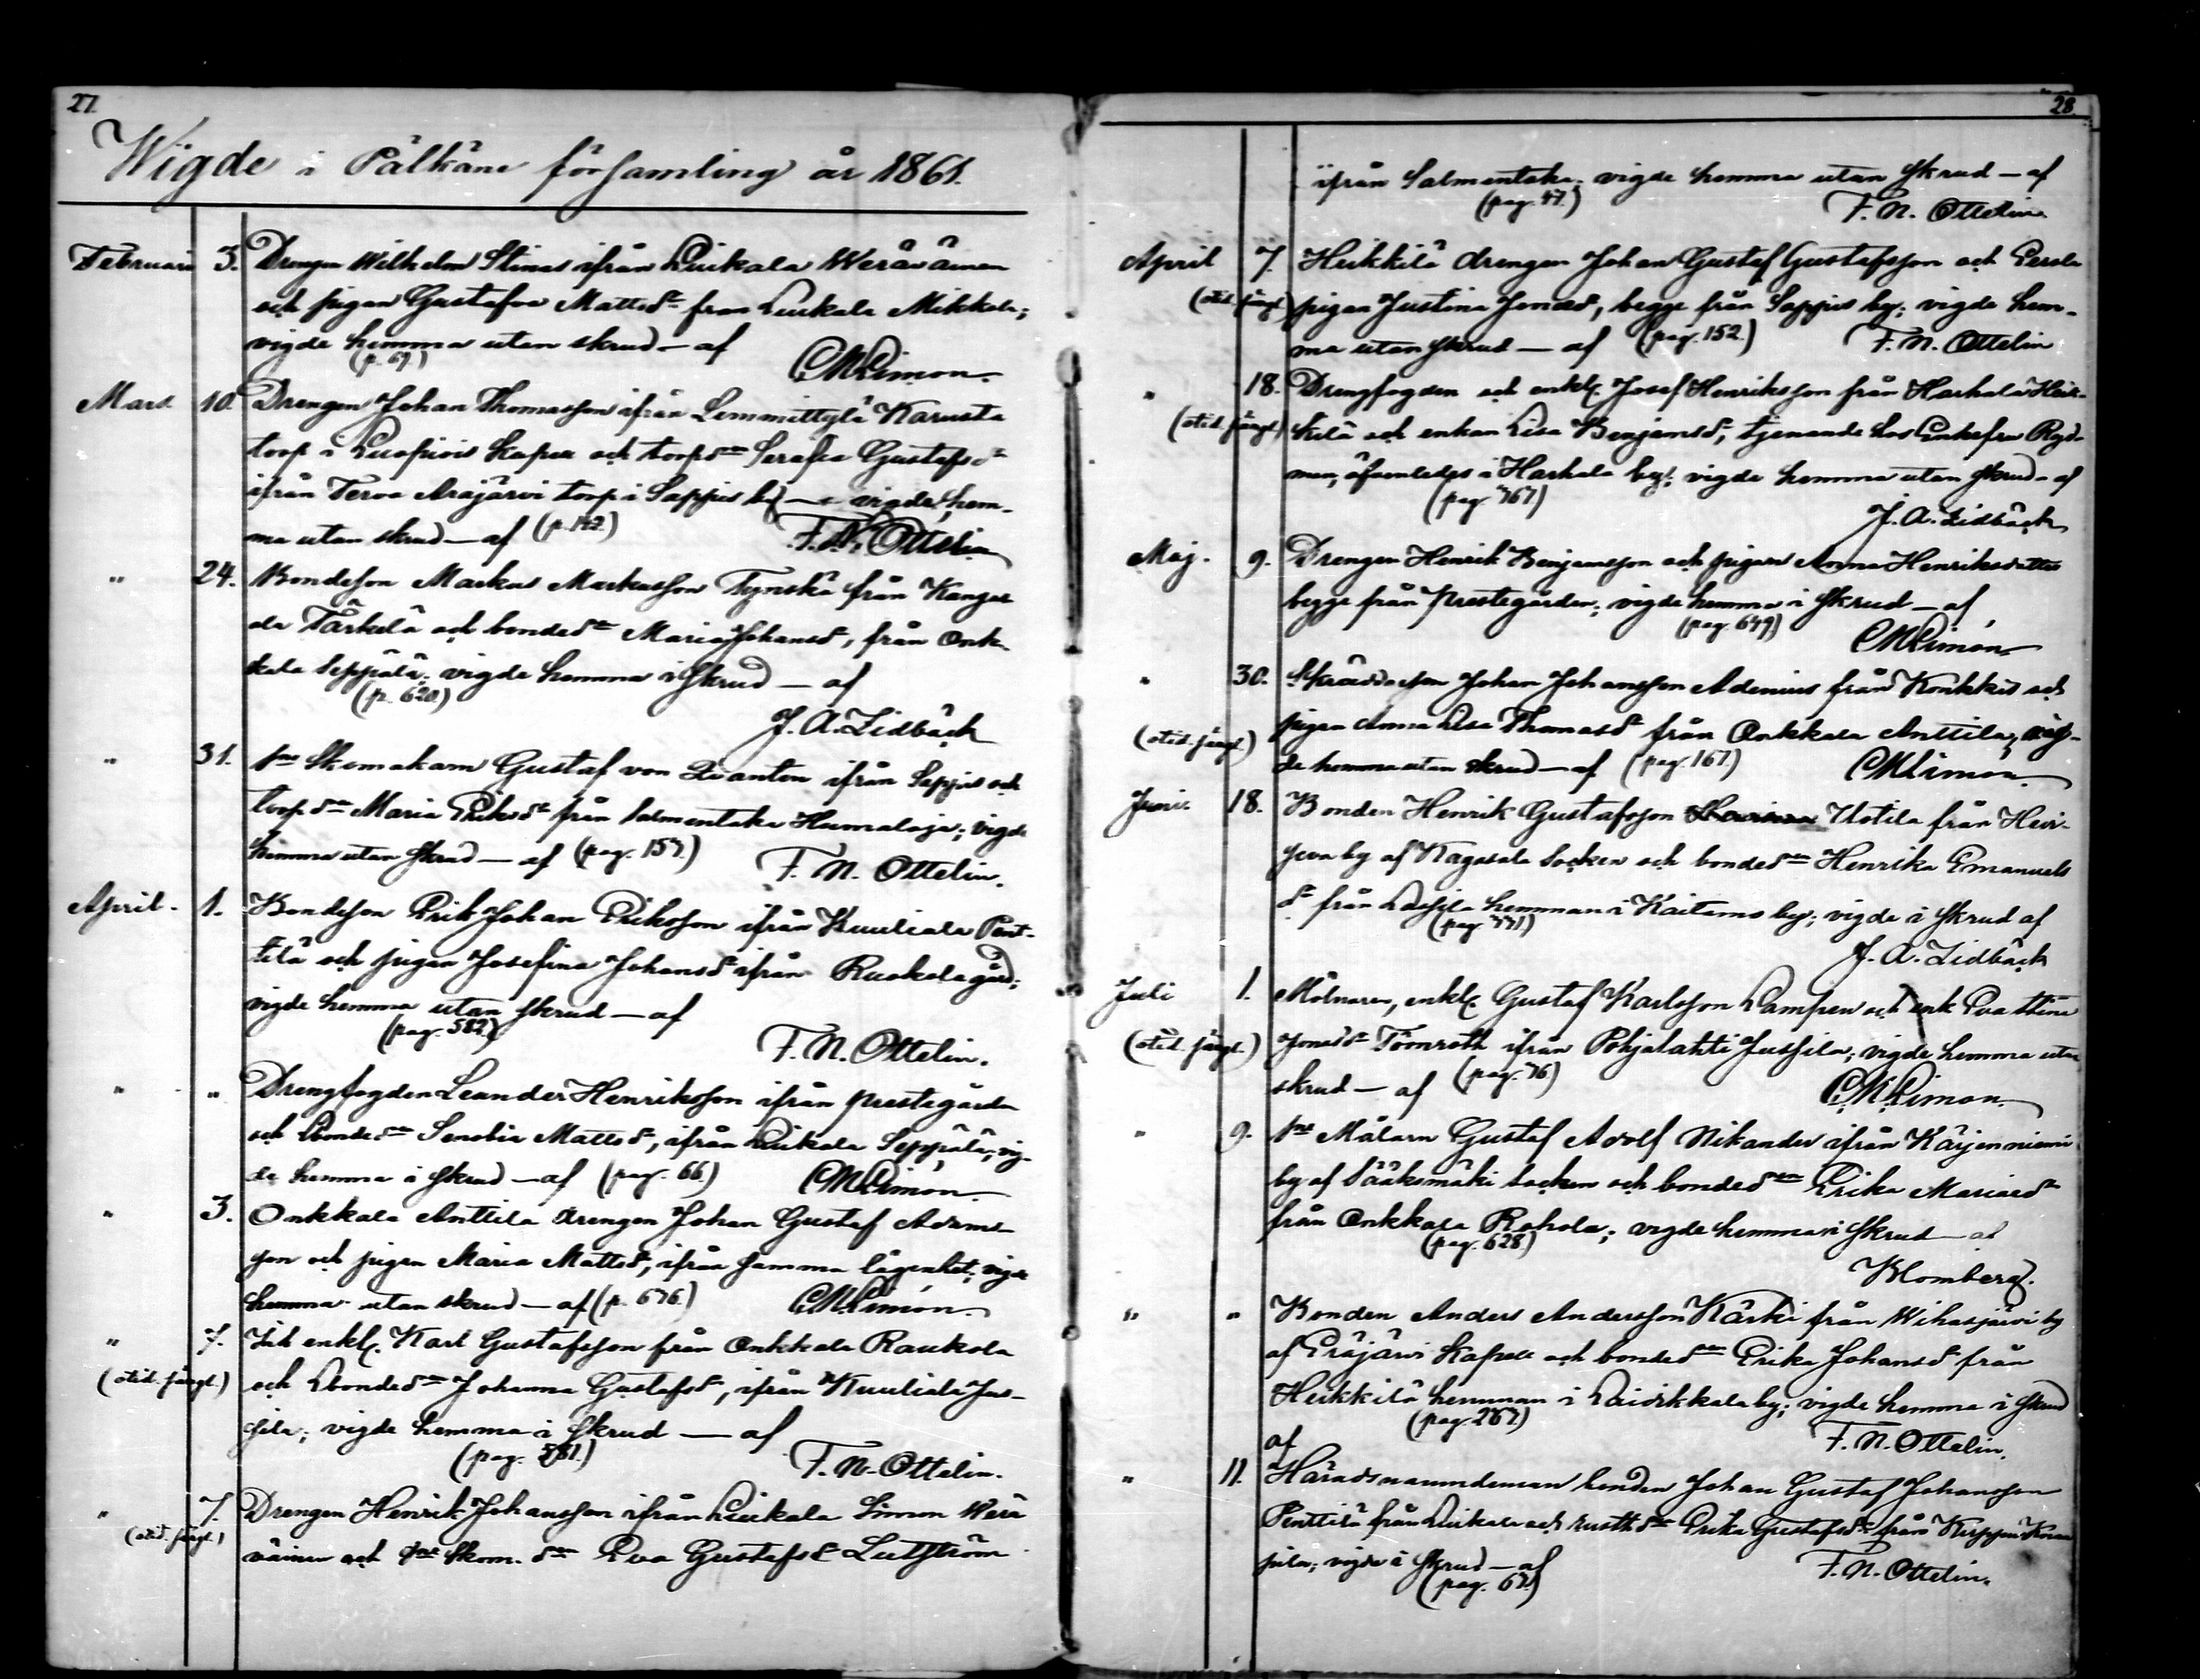 27.
Wigde i Pälkäne församling år 1861.
Februari 3. Drengen Wilhelm Stinas ifrån Luikala Weräväinen
och pigan Gustafva Mattsdr från Luikala Mikkola;
vigde hemma utan skrud — af
(p. 69.) CMLimón.
Mars 10. Drengen Johan Thomasson ifrån Lemmittylä Karusta
torp i Luopiois Kapell och torpdrn Serafia Gustafsdr
ifrån Terva Arajärvi torp i Sappis by — vigde hem-
ma utan skrud — af (p. 142.) F. N. Ottelin
" 24. Bondeson Markus Markusson Tynskä från Kangas
ala Tärkelä och bondedrn Maria Johansdr, från Onk-
kala Seppälä; vigde hemma i skrud — af
(p. 620.)
J. A. Lidbäck
" 31. Skomakarn Gustaf von Qvanten ifrån Sappis och
torpdrn Maria Eriksdr från Salmentaka Humaloja; vigde
hemma utan skrud — af (pag. 157.) F. N. Ottelin.
April. 1. Bondeson Erik Johan Eriksson ifrån Kuuliala Pent-
tilä och pigan Josefina Johansdr ifrån Ruokola gård;
vigde hemma utan skrud — af
(pag. 582.)
F. N. Ottelin.
" " Drengfogden Leander Henriksson ifrån prestegården
och bondedrn Senobia Mattsdr, ifrån Luikala Seppälä; vig-
de hemma i skrud — af (pag. 66.) CMLimón.
" 3. Onkkala Anttila drengen Johan Gustaf Adams-
son och pigan Maria Mattsdr, ifrån samma lägenhet; vigde
hemma utan skrud — af (p. 676.) CMLimón.
" 7. enkl. Karl Gustafsson från Onkkala Raukola
(otid. fängl.) och bondedrn Johanna Gustafsdr, ifrån Kuuliala Jus-
sila; vigde hemma i skrud — af
(pag. 581.)
F. N. Ottelin.
" 7. Drengen Henrik Johansson ifrån Luikala Simon Werä
(otid. fängl.) väinen och Skom. drn Eva Gustafsdr Lutström
28.
ifrån Salmentaka; vigde hemma utan skrud — af
(pag. 47.) F. N. Ottelin.
April 7. Heikkilä drengen Johan Gustaf Gustafsson och Perola
(otid. fängl.) pigan Justina Jonasdr, begge från Sappis by; vigde hem-
ma utan skrud — af (pag. 152.) F. N. Ottelin
" 18. Drengfogden och enkl. Josef Henriksson från Harhala Heik-
(otid. fängl.) kilä och enkan Lisa Benjamsdr, tjenande hos Enkefru Ryd-
man, äfvenledes i Harhala by; vigde hemma utan skrud — af
(pag. 767)
J. A. Lidbäck
Maj. 9. Drengen Henrik Benjamsson och pigan Anna Henriksdotter
begge från prestegården; vigde hemma i skrud — af
(pag. 649)
CMLimón
" 30. Skräddaren Johan Johansson Adenius från Konkkis och
(otid. fängl.) pigan Anna Lisa Thomasdr från Onkkala Anttila; vig-
de hemma utan skrud — af (pag. 167.) CMLimón
Juni 18. Bonden Henrik Gustafsson Uotila från Havi-
seva by af Kagasala Socken och bondedrn Henrika Emanuels
dr från Lassila hemman i Kaitamo by; vigde i skrud af
(pag. 771)
J. A. Lidbäck
Juli 1. Mölnaren, enkl. Gustaf Karlsson Lampen och enk. Eva Stina
(otid. fängl.) Jonasdr Törnroth ifrån Pohjalahti Jussila; vigde hemma utan
skrud — af (pag. 76) CMLimón.
" 9. Målarn Gustaf Adolf Nikander ifrån Kärjenniemi
by af Sääksmäki Socken och bondedrn Erika Mariasdr
från Onkkala Rohola; vigde hemma i skrud — af
(pag. 628.)
Blomberg.
" " Bonden Anders Andersson Kärki från Wihasjärvi by
af Eräjärvi Kapell och bondedrn Erika Johansdr från
Heikkilä hemman i Laivikkala by; vigde hemma i skrud
(pag. 267)
af F. N. Ottelin.
" 11. Häradsnämndeman bonden Johan Gustaf Johansson
Penttilä från Luikala och rusth.drn Erika Gustafsdr från
pila; vigde i skrud — af F. N. Ottelin.
(pag. 67.)